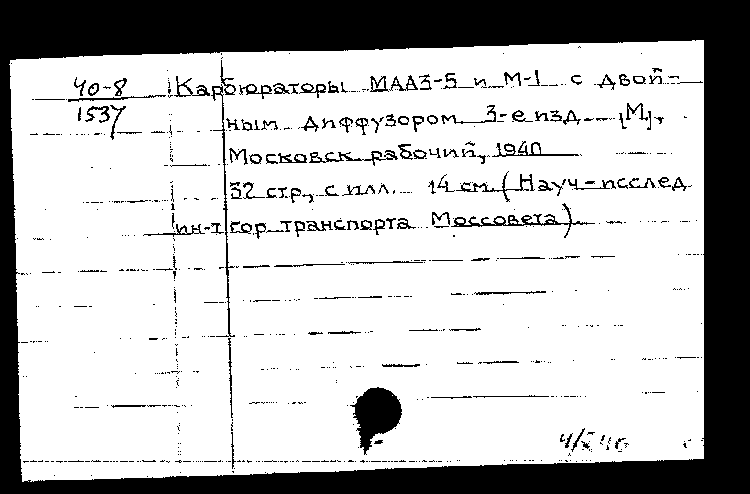 40-8 Карбюраторы МААЗ-5 и М-1 с двой-
1537 ным диффузором. 3-е изд. [М],
Московск. рабочий, 1940
32 стр., с илл. 14 см. (Науч-исслед
ин-т гор. транспорта Моссовета).
4/X 40